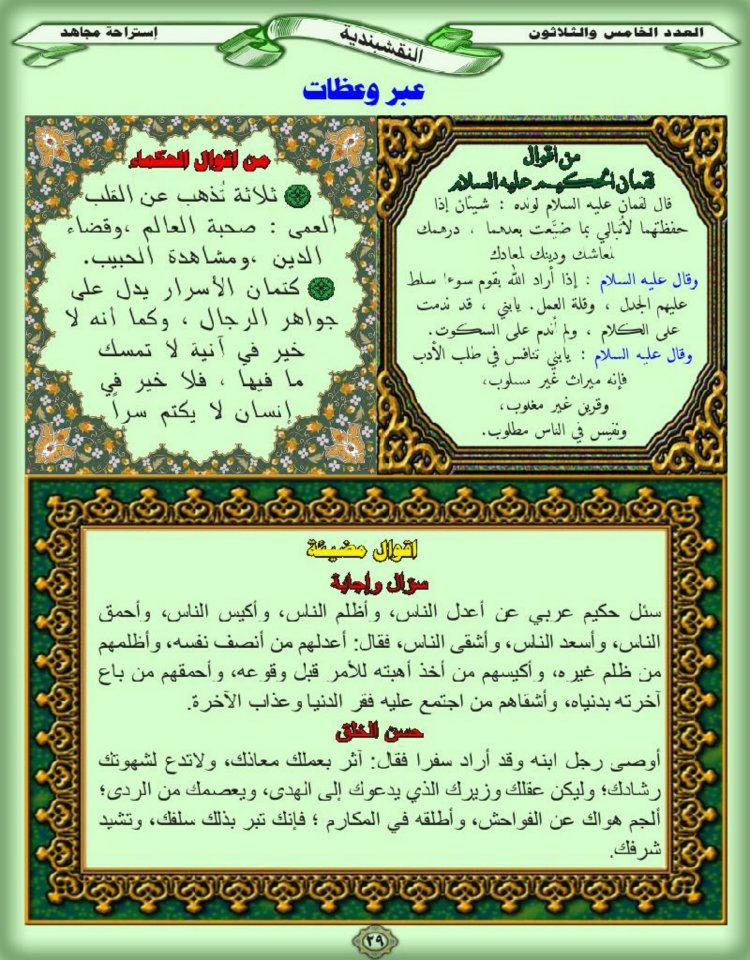 العدد الخامس والثلاثون
النقشبندية
إستراحة مجاهد
عبر وعظات
من اقوال
لقمان الحكيم عليه السلام
قال لقمان عليه السلام لولده : شيئان إذا
حفظتهما لاتبالي بما ضيَّعت بعدهما ، درهمك
لمعاشك ودينك لمعادك
وقال عليه السلام : إذا أراد الله بقوم سوءا سلط
عليهم الجدل ، وقلة العمل. يابني ، قد ندمت
على الكلام ، ولم أندم على السكوت.
وقال عليه السلام : يابني تنافس في طلب الأدب
فإنه ميراث غير مسلوب،
وقرين غير مغلوب،
ونفيس في الناس مطلوب.
من اقوال الحكماء
ثلاثة تُذهب عن القلب
العمى : صحبة العالم ،وقضاء
الدين ،ومشاهدة الحبيب.
كتمان الأسرار يدل على
جواهر الرجال ، وكما أنه لا
خير في آنية لا تمسك
ما فيها ، فلا خير في
إنسان لا يكتم سراً
اقوال مضيئة
سؤال وإجابة
سئل حكيم عربي عن أعدل الناس، وأظلم الناس، وأكيس الناس، وأحمق
الناس، وأسعد الناس، وأشقى الناس، فقال: أعدلهم من أنصف نفسه، وأظلمهم
من ظلم غيره، وأكيسهم من أخذ أهبته للأمر قبل وقوعه، وأحمقهم من باع
آخرته بدنياه، وأشقاهم من اجتمع عليه فقر الدنيا وعذاب الآخرة.
حسن الخلق
أوصى رجل ابنه وقد أراد سفرا فقال: آثر بعملك معادك، ولاتدع لشهوتك
رشادك؛ وليكن عقلك وزيرك الذي يدعوك إلى الهدى، ويعصمك من الردى؛
ألجم هواك عن الفواحش، وأطلقه في المكارم ؛ فإنك تبر بذلك سلفك، وتشيد
شرفك.
٢٩